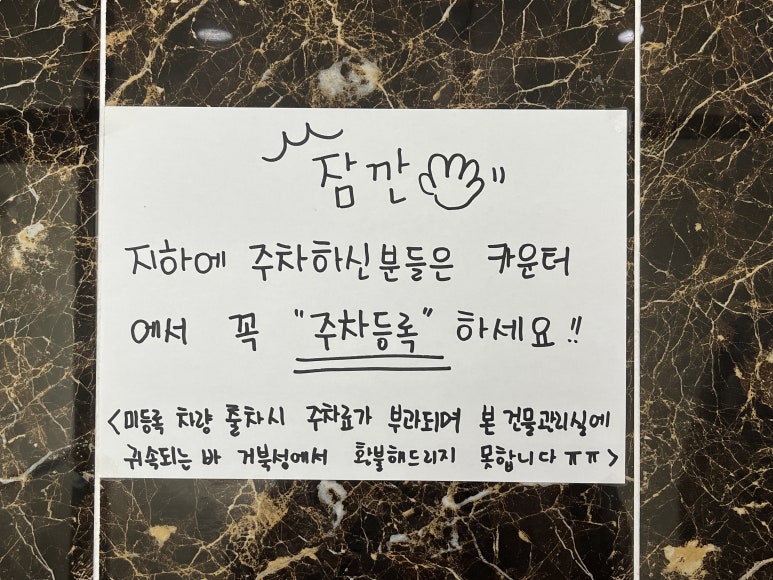 잠깐
지하에 주차하신분들은 카운터
에서 꼭 "주차등록" 하세요!!
<미등록 차량 출차시 주차료가 부과되며 본 건물관리실에
귀속되는 바 거북성에서 환불해드리지 못합니다 ㅠㅠ>